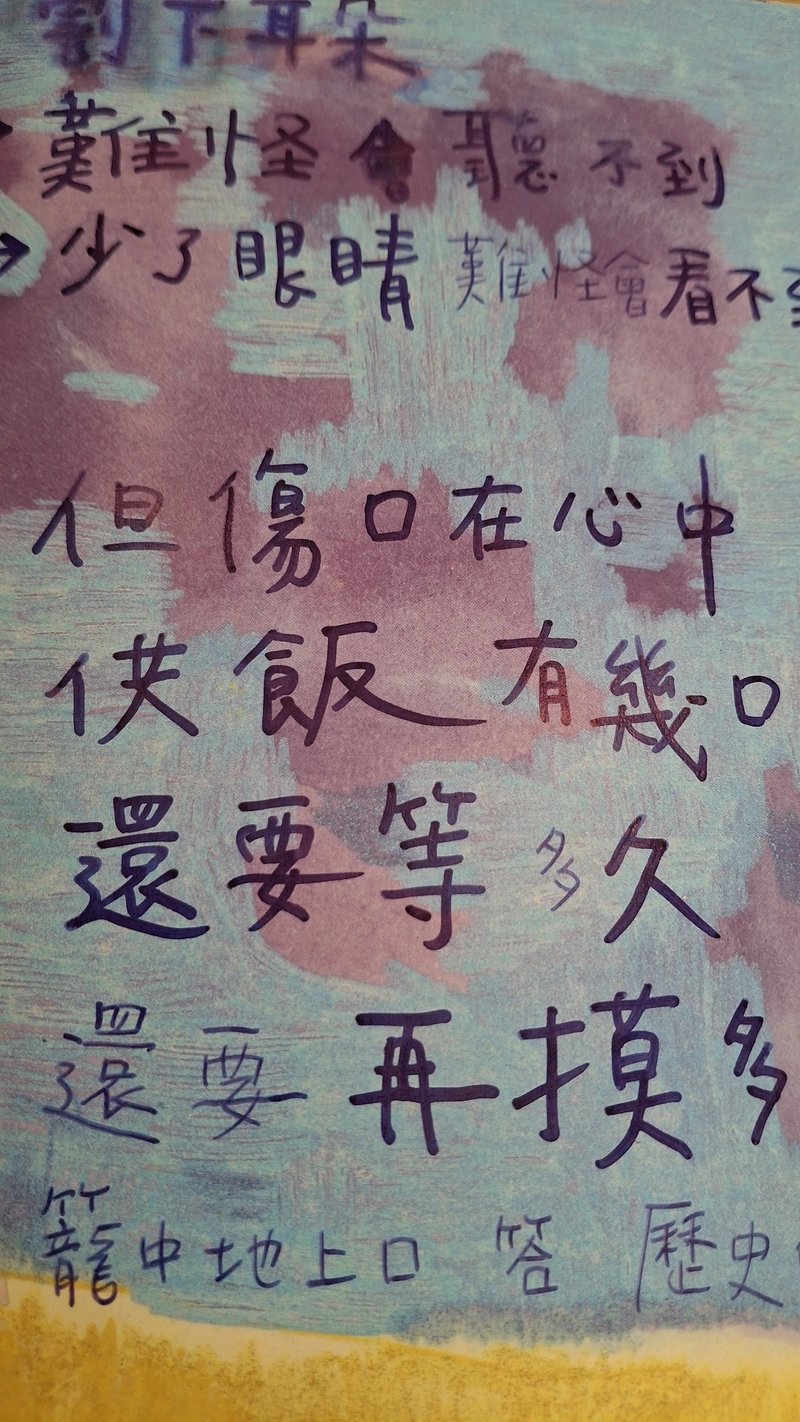 割下耳朵
難怪會聽不到
→少了眼睛難怪會看不到
但傷口在心中
供飯有幾口
還要等多久
還要再摸多
籠中地上口 答 歷史